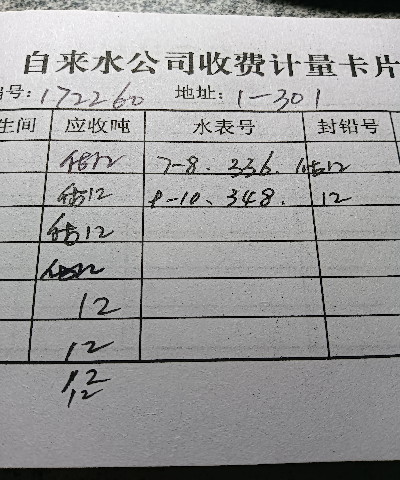 自来水公司收费计量卡片
编号:172260 地址:1-301
生间 应收吨 水表号 封铅号
估12 7-8. 336. 估12
估12 9-10. 348. 12
估12
估12
12
12
12
12